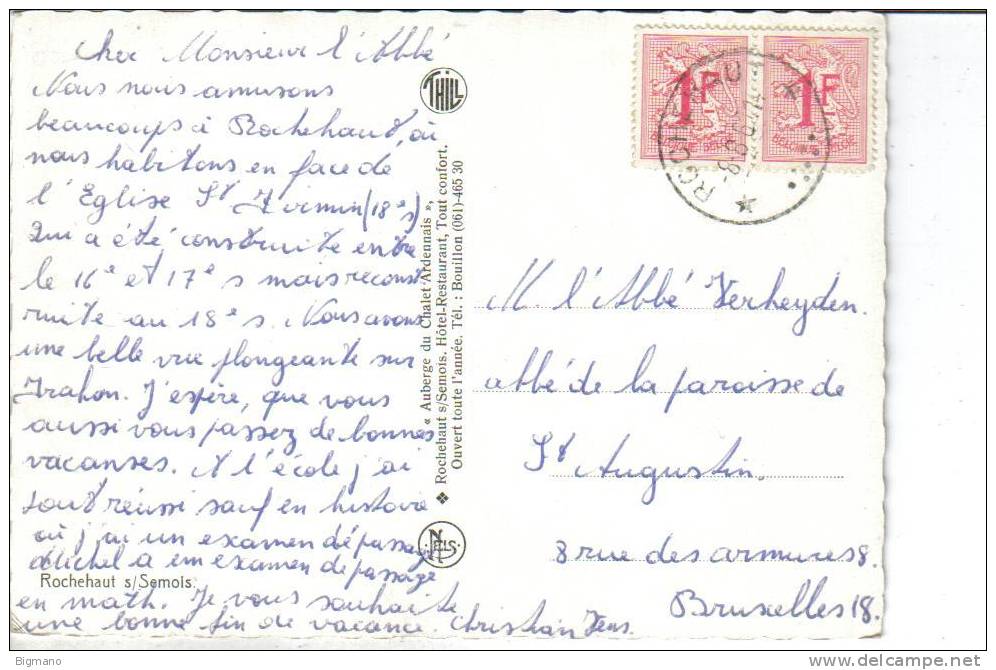 Cher Monsieur l'Abbé
Nous nous amusons
beaucoups à Rochehaut, où
nous habitons en face de
l'Eglise St Firmin (18e s)
Qui a été construite entre
le 16e et 17e s mais reconst
ruite au 18e s. Nous avons
une belle vue plongeante sur
Frahan. J'espère, que vous
aussi vous passez de bonnes
vacanses. A l'école j'ai
tout réussi sauf en histoire
où j'ai un examen de passage
Michel a em examen de passage
en math. Je vous souhaite
une bonne fin de vacance. Christian
Rochehaut s/Semois.
THILL
« Auberge du Chalet Ardennais »,
❖ Rochehaut s/Semois. Hôtel-Restaurant, Tout confort.
Ouvert toute l'année. Tél. : Bouillon (061)-465 30
NELS
1F
1F
BELGIQUE BELGIE
ROCHEHAUT
M l'Abbé Verheyden.
abbé de la paroisse de
St Augustin.
8 rue des armures 8.
Bruxelles 18.
Bigmano
delcampe.net